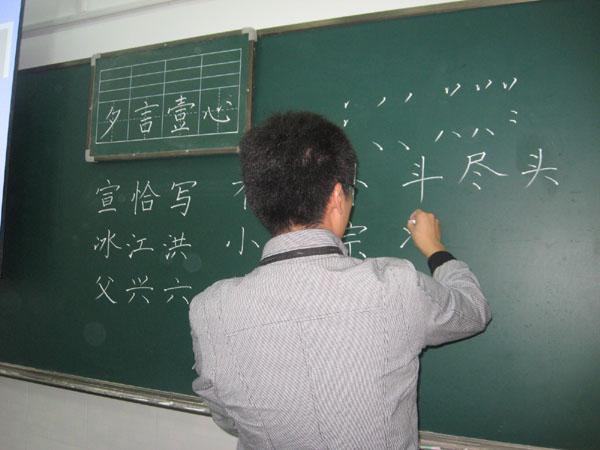 夕言壹心
宣恰写 斗尽头
冰江洪 小 宗
父兴六